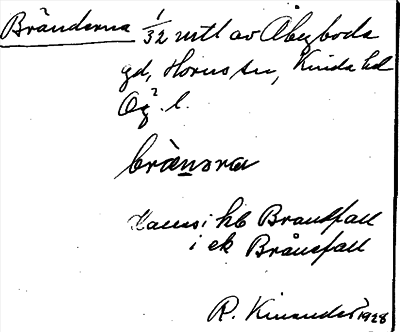 Brånderna 1/32 mtl av Åbyboda
gd, Horns sn, Kinda hd
Ög. l.
brànəra
Kallas i hb Brantfall
i ek Brånefall
R. Kinander 1928